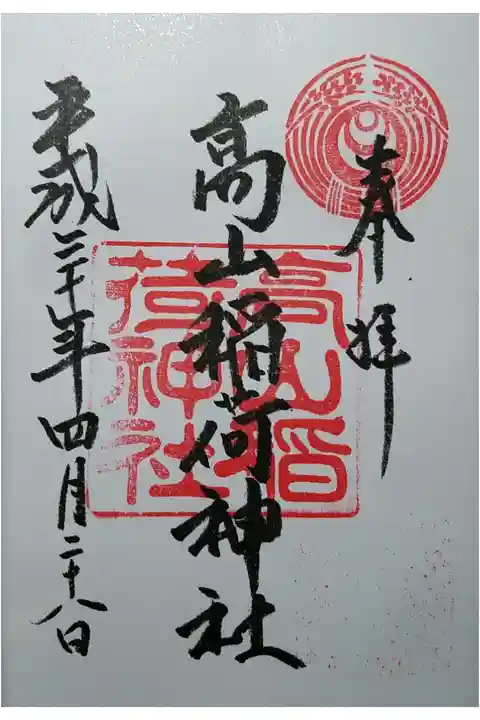 奉拝
高山稲荷神社
高山稲荷神社
平成三十年四月二十八日